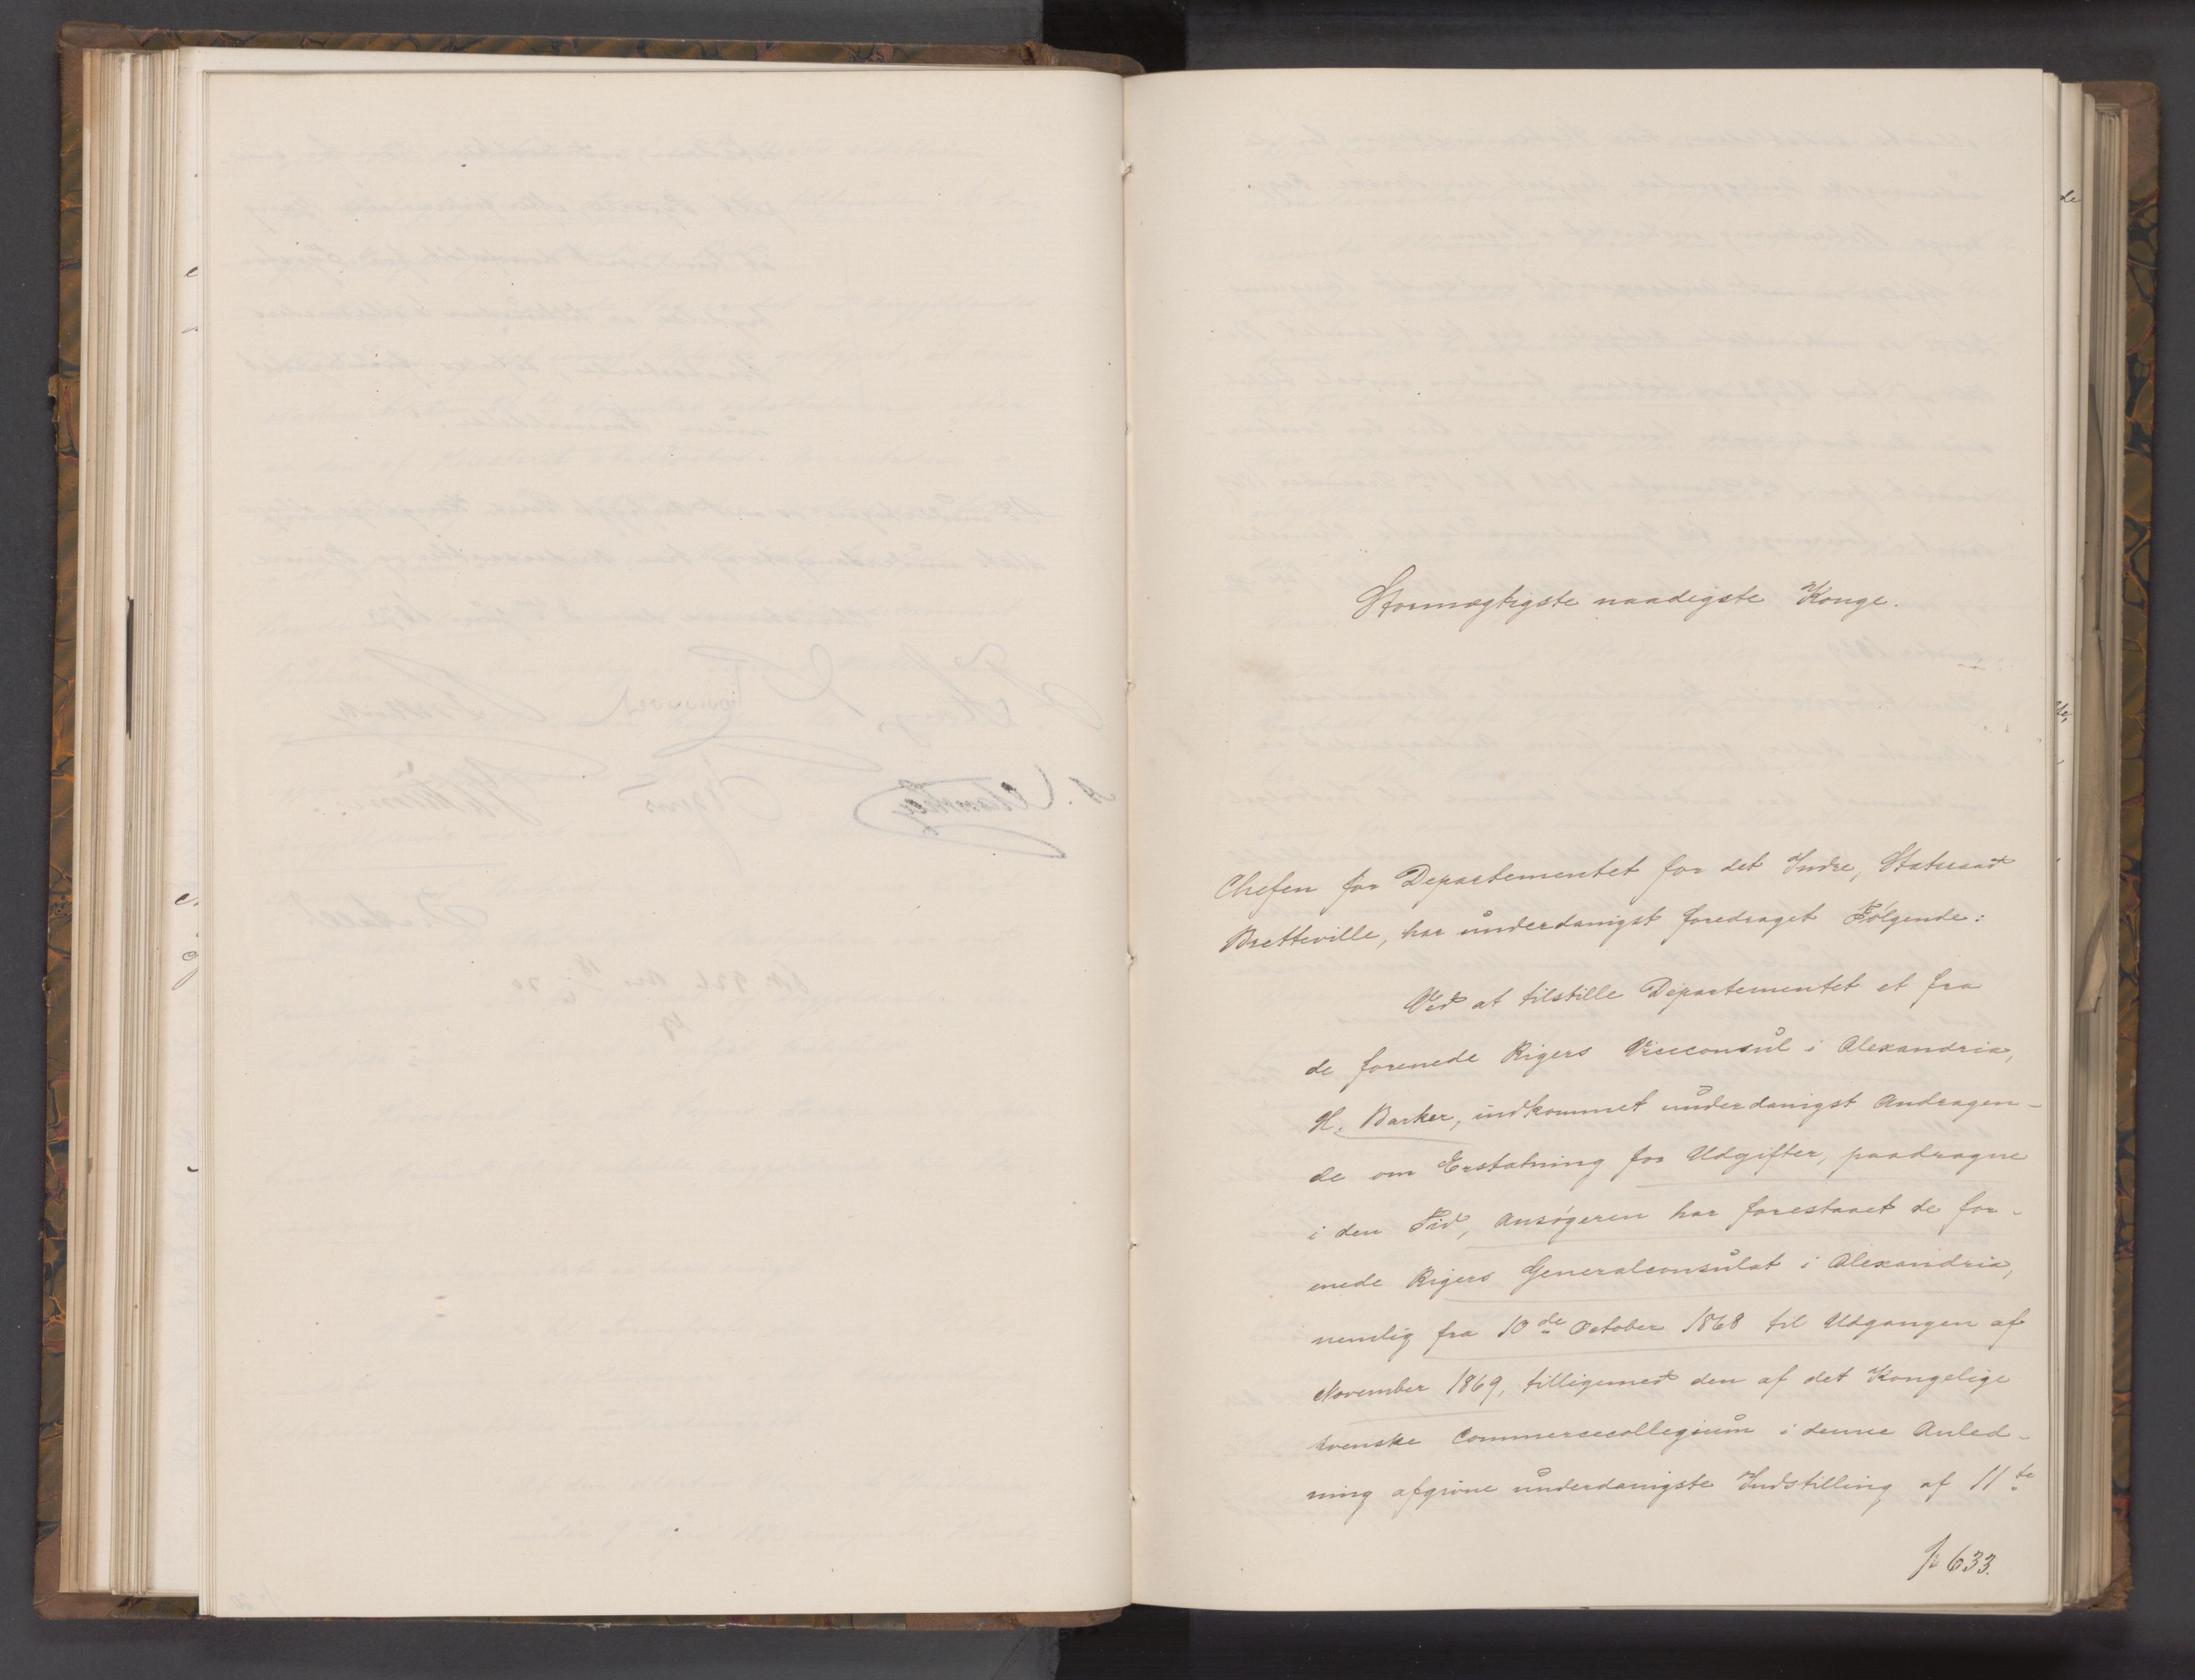 Stormægtigste naadigste Konge.
Chefen for Departementet for det Indre, Statsraad
Bretteville, har underdanigst foredraget Følgende:
Ved at tilstille Departementet et fra
de forenede Rigers Viceconsul i Alexandria,
H. Barker, indkommet underdanigst Andragen-
de om Erstatning for Udgifter, paadragne
i den Tid, Ansøgeren har forestaaet de for-
enede Rigers Generalconsulat i Alexandria,
nemlig fra 10de October 1868 til Udgangen af
November 1869, tilligemed den af det Kongelige
svenske Commercecollegium i denne Anled-
ning afgivne underdanigste Indstilling af 11te
p 633.